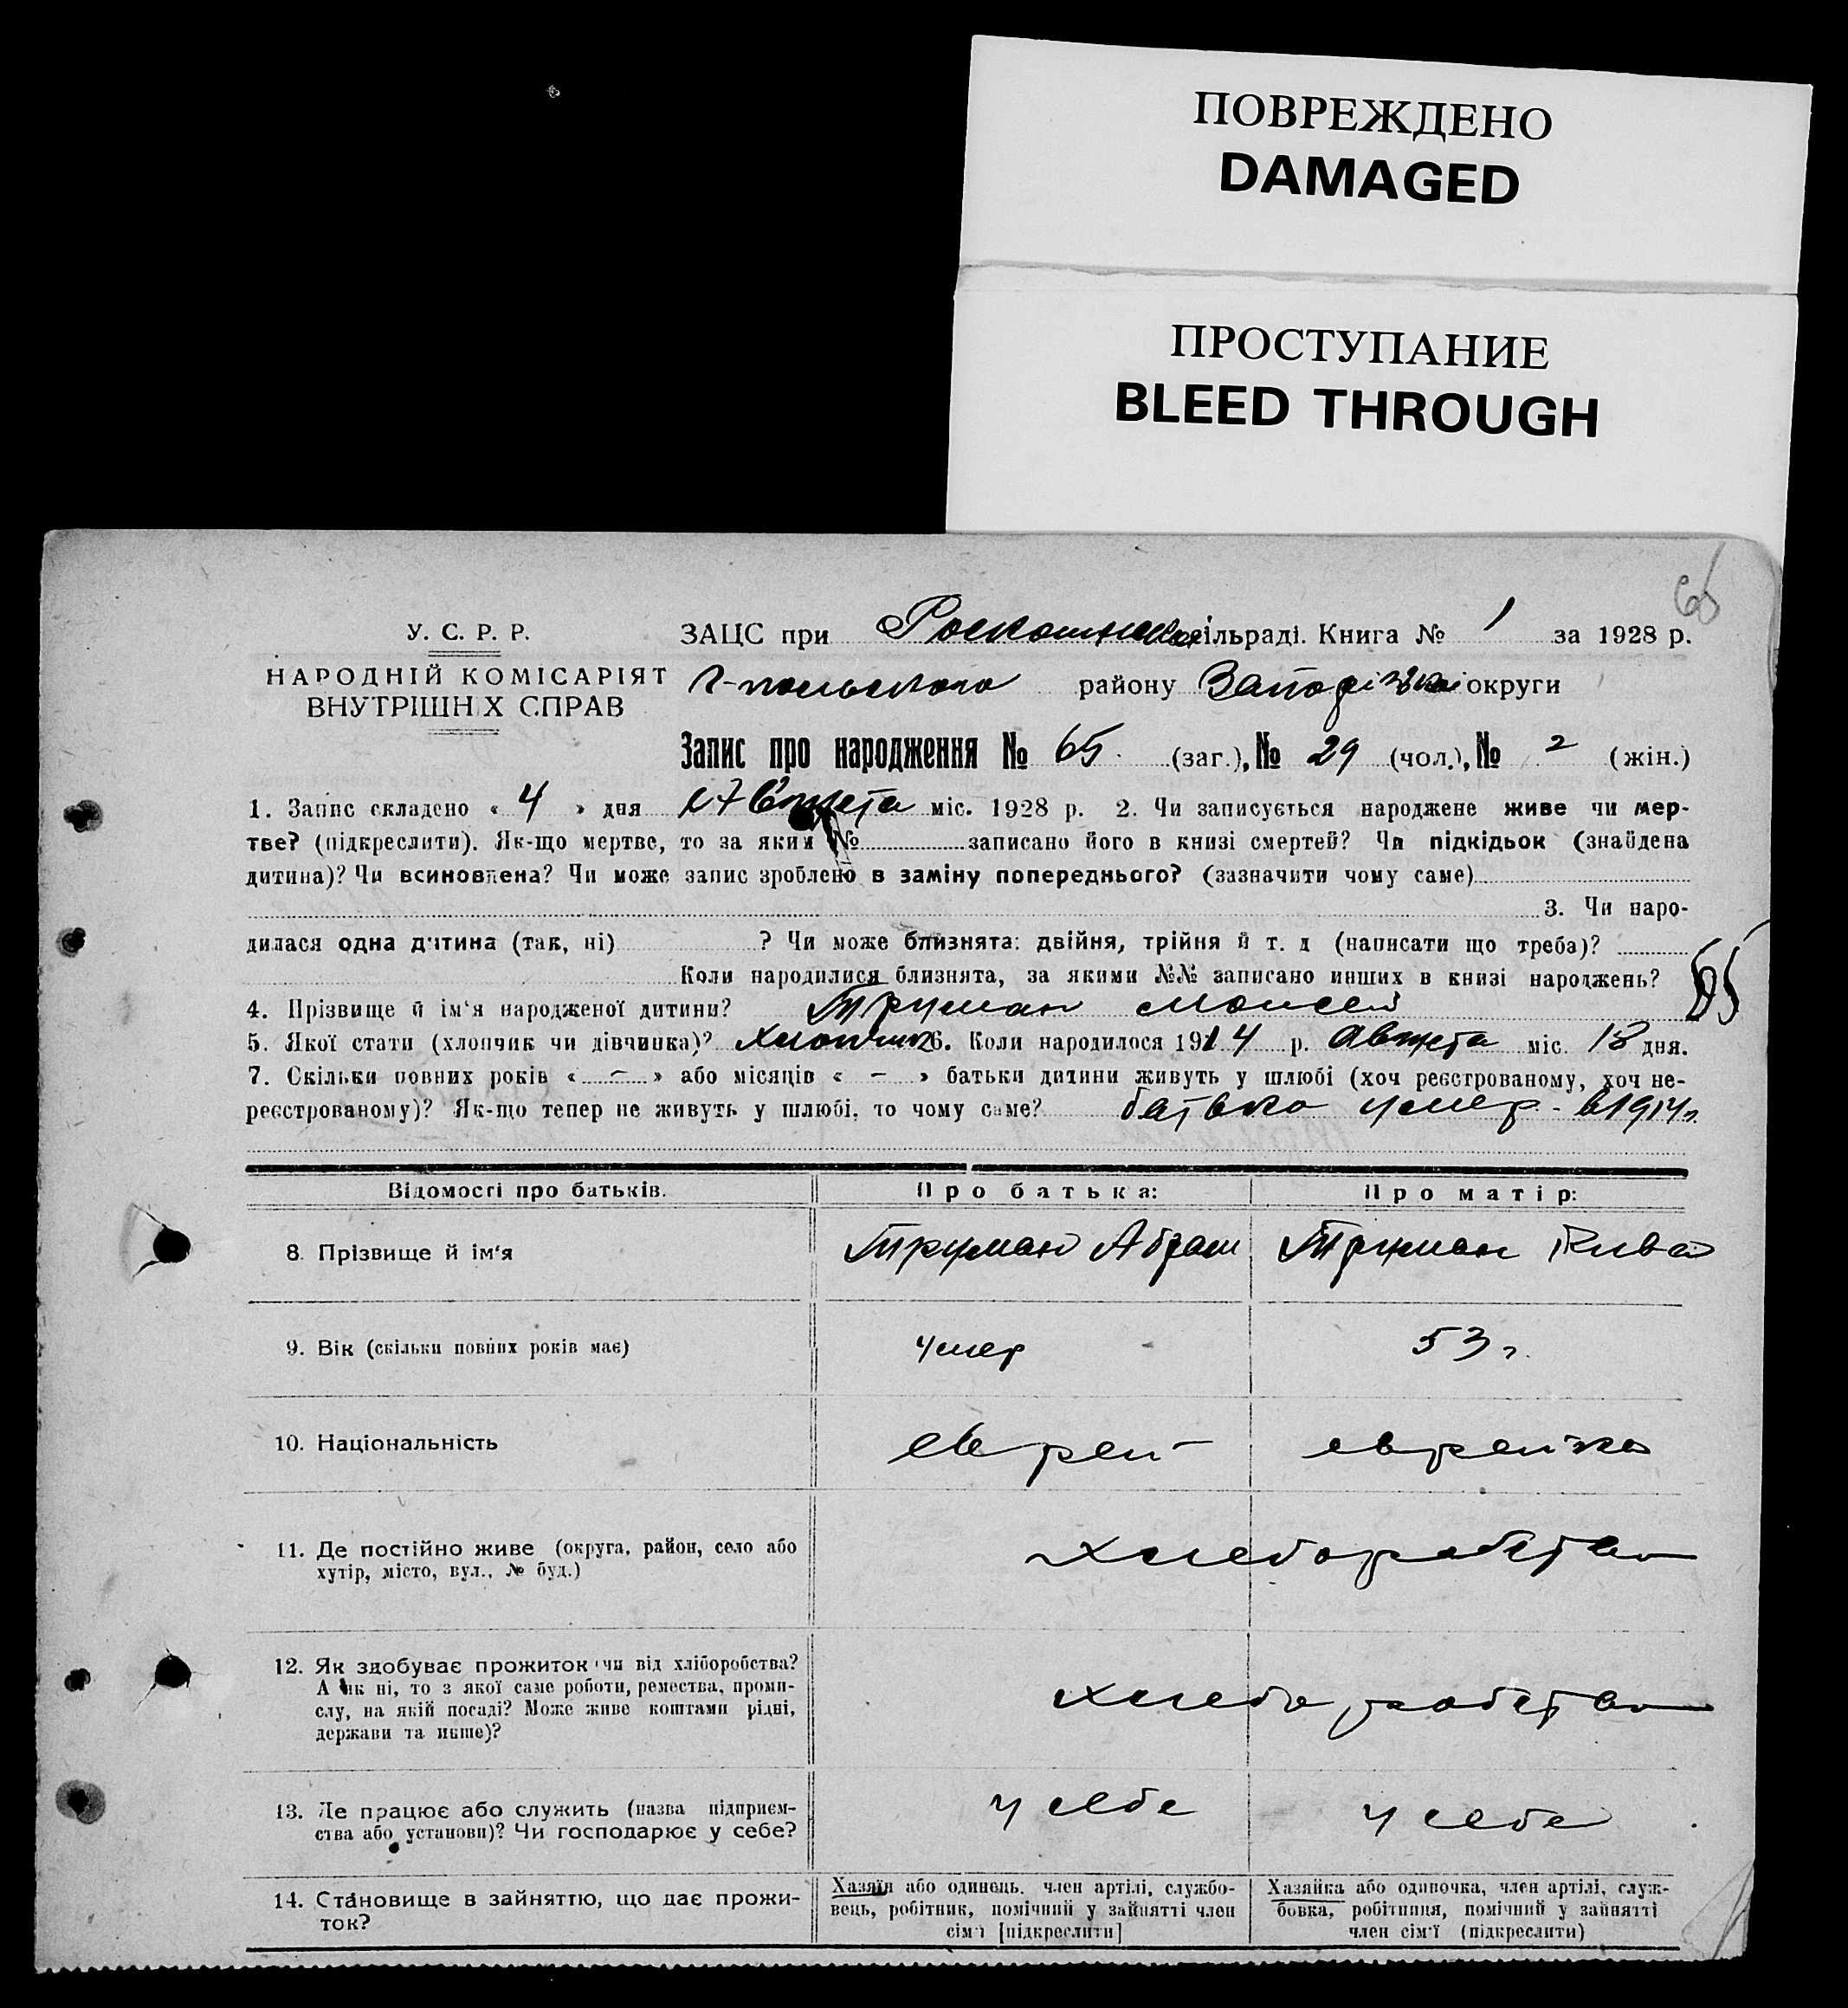 ПОВРЕЖДЕНО
DAMAGED
ПРОСТУПАНИЕ
BLEED THROUGH
65
У. С. Р. Р.
НАРОДНІЙ КОМІСАРІЯТ
ВНУТРІШНІХ СПРАВ
ЗАЦС при сільраді. Книга № 1 за 1928 р.
Г-польского району Запорізької округи
Запис про народження № 65 (заг.), № 29 (чол.), № 2 (жін.)
1. Запис складено « 4 » дня Августа міс. 1928 р. 2. Чи записується народжене живе чи мер-
тве? (підкреслити). Як-що мертве, то за яким № записано його в книзі смертей? Чи підкідьок (знайдена
дитина)? Чи всиновлена? Чи може запис зроблено в заміну попереднього? (зазначити чому саме)
3. Чи наро-
дилася одна дитина (так, ні) ? Чи може близнята: двійня, трійня й т. д (написати що треба)?
Коли народилися близнята, за якими №№ записано инших в книзі народжень?
65
4. Прізвище й ім'я народженої дитини? Труман Моисей
5. Якої стати (хлопчик чи дівчинка)? хлопчик 6. Коли народилося 1914 р. Августа міс. 13 дня.
7. Скільки повних років « – » або місяців « – » батьки дитини живуть у шлюбі (хоч реєстрованому, хоч не-
реєстрованому)? Як-що тепер не живуть у шлюбі, то чому саме? батько умер - в 1914 г.
Відомості про батьків.
Про батька:
Про матір:
8. Прізвище й ім'я
Труман Абрам
Труман Рива
9. Вік (скільки повних років має)
умер
53 г.
10. Національність
еврей
еврейка
11. Де постійно живе (округа, район, село або
хутір, місто, вул., № буд.)
хлеборобство
12. Як здобуває прожиток чи від хліборобства?
А як ні, то з якої саме роботи, ремества, проми-
слу, на якій посаді? Може живе коштами рідні,
держави та инше)?
хлеборобство
13. Де працює або служить (назва підприєм-
ства або установи)? Чи господарює у себе?
у себе
у себе
14. Становище в зайняттю, що дає прожи-
ток?
Хазяїн або одинець, член артілі, службо-
вець, робітник, помічний у зайнятті член
сім'ї [підкреслити]
Хазяйка або одиночка, член артілі, служ-
бовка, робітниця, помічний у зайнятті
член сім'ї (підкреслити)